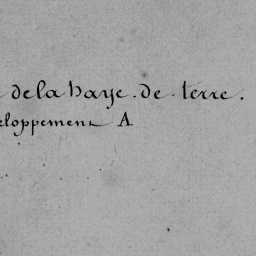 delahaye. de. terre.
eloppement A.